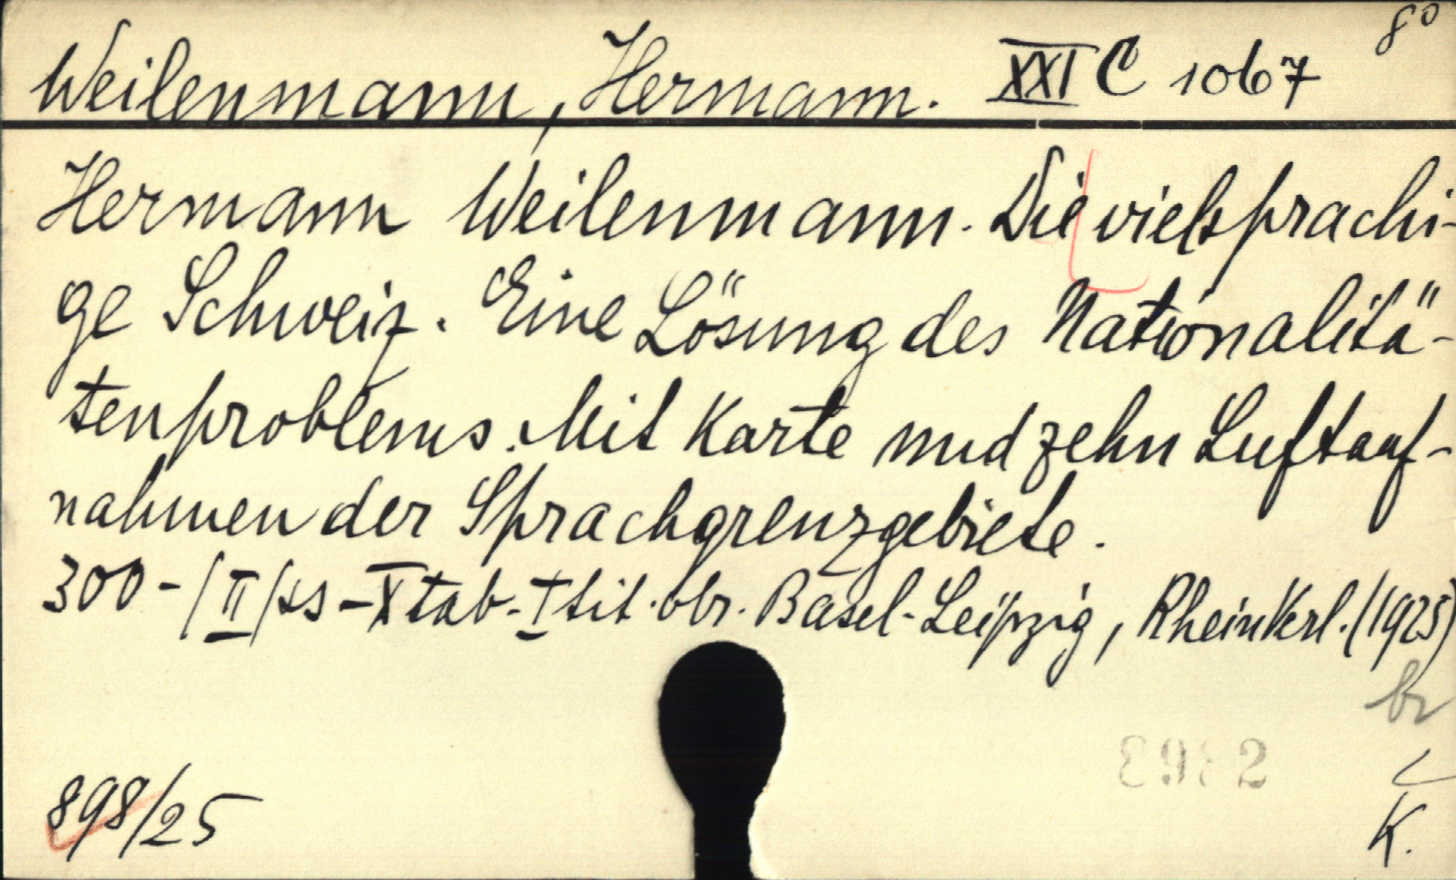 8°
Weilenmann, Hermann. XXI C 1067
Hermann Weilenmann. Die vielsprachi-
ge Schweiz. Eine Lösung des Nationalitä-
tenproblems. Mit Karte und zehn Luftauf-
nahmen der Sprachgrenzgebiete.
300-/II/ss-X tab-I tit. obr. Basel-Leipzig, Rhein Verl. (1925)
br
898/25
K.